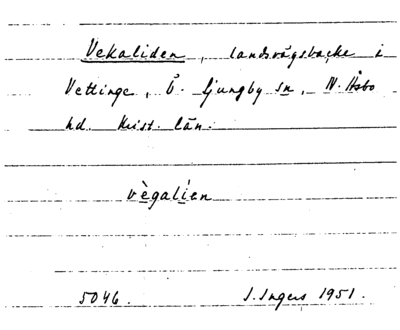 Vekaliden, landsvägsbacke i
Vettinge, Ö. Ljungby sn, N. Åsbo
hd. Krist. län.
vègalíen
5046. I. Ingers 1951.